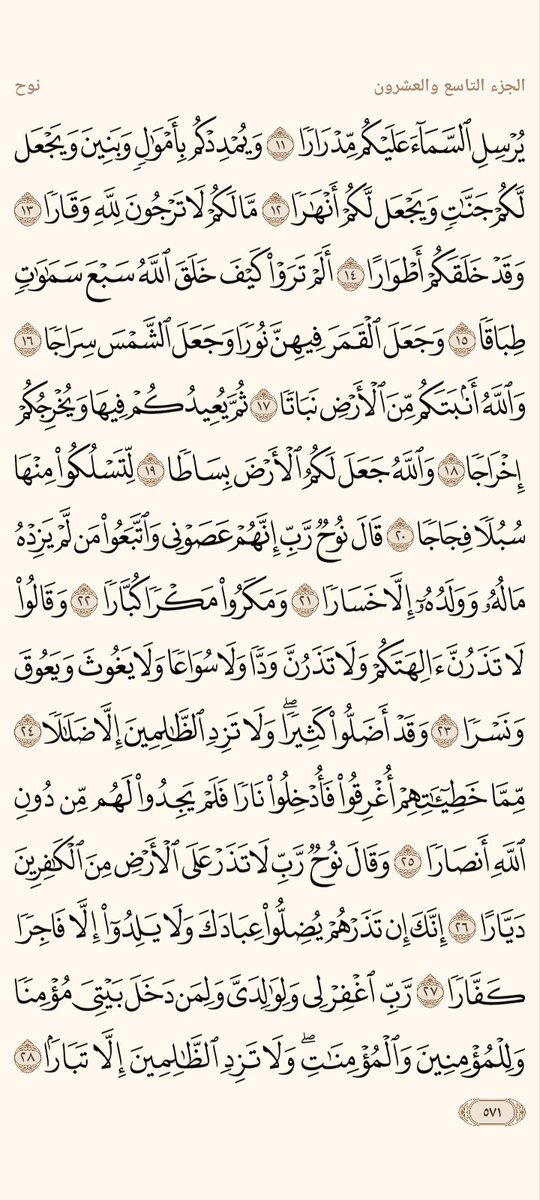 الجزء التاسع والعشرون نوح
يُرْسِلِ ٱلسَّمَآءَ عَلَيْكُم مِّدْرَارًا ١١ وَيُمْدِدْكُم بِأَمْوَٰلٍ وَبَنِينَ وَيَجْعَل
لَّكُمْ جَنَّٰتٍ وَيَجْعَل لَّكُمْ أَنْهَٰرًا ١٢ مَّا لَكُمْ لَا تَرْجُونَ لِلَّهِ وَقَارًا ١٣
وَقَدْ خَلَقَكُمْ أَطْوَارًا ١٤ أَلَمْ تَرَوْا۟ كَيْفَ خَلَقَ ٱللَّهُ سَبْعَ سَمَٰوَٰتٍ
طِبَاقًا ١٥ وَجَعَلَ ٱلْقَمَرَ فِيهِنَّ نُورًا وَجَعَلَ ٱلشَّمْسَ سِرَاجًا ١٦
وَٱللَّهُ أَنۢبَتَكُم مِّنَ ٱلْأَرْضِ نَبَاتًا ١٧ ثُمَّ يُعِيدُكُمْ فِيهَا وَيُخْرِجُكُمْ
إِخْرَاجًا ١٨ وَٱللَّهُ جَعَلَ لَكُمُ ٱلْأَرْضَ بِسَاطًا ١٩ لِّتَسْلُكُوا۟ مِنْهَا
سُبُلًا فِجَاجًا ٢٠ قَالَ نُوحٌ رَّبِّ إِنَّهُمْ عَصَوْنِى وَٱتَّبَعُوا۟ مَن لَّمْ يَزِدْهُ
مَالُهُۥ وَوَلَدُهُۥٓ إِلَّا خَسَارًا ٢١ وَمَكَرُوا۟ مَكْرًا كُبَّارًا ٢٢ وَقَالُوا۟
لَا تَذَرُنَّ ءَالِهَتَكُمْ وَلَا تَذَرُنَّ وَدًّا وَلَا سُوَاعًا وَلَا يَغُوثَ وَيَعُوقَ
وَنَسْرًا ٢٣ وَقَدْ أَضَلُّوا۟ كَثِيرًا ۖ وَلَا تَزِدِ ٱلظَّٰلِمِينَ إِلَّا ضَلَٰلًا ٢٤
مِّمَّا خَطِيٓـَٰٔتِهِمْ أُغْرِقُوا۟ فَأُدْخِلُوا۟ نَارًا فَلَمْ يَجِدُوا۟ لَهُم مِّن دُونِ
ٱللَّهِ أَنصَارًا ٢٥ وَقَالَ نُوحٌ رَّبِّ لَا تَذَرْ عَلَى ٱلْأَرْضِ مِنَ ٱلْكَٰفِرِينَ
دَيَّارًا ٢٦ إِنَّكَ إِن تَذَرْهُمْ يُضِلُّوا۟ عِبَادَكَ وَلَا يَلِدُوٓا۟ إِلَّا فَاجِرًا
كَفَّارًا ٢٧ رَّبِّ ٱغْفِرْ لِى وَلِوَٰلِدَىَّ وَلِمَن دَخَلَ بَيْتِىَ مُؤْمِنًا
وَلِلْمُؤْمِنِينَ وَٱلْمُؤْمِنَٰتِ ۖ وَلَا تَزِدِ ٱلظَّٰلِمِينَ إِلَّا تَبَارًۢا ٢٨
٥٧١